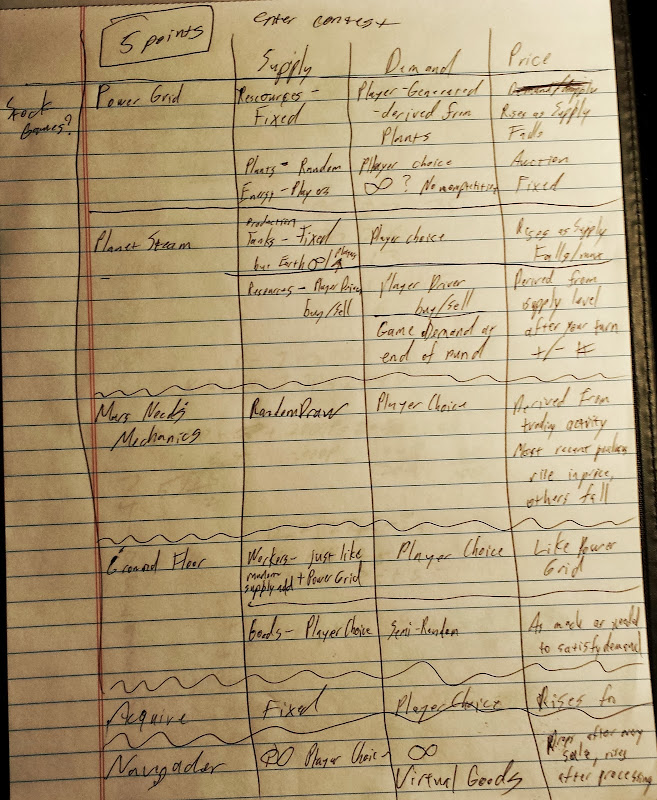 5 points
enter contest
Supply Demand Price
Stock
Games?
Power Grid
Rescources -
Fixed
Player-Generated
-derived from
Plants
Rises as Supply
Falls
Plants - Random
Player choice
Auction
Energy - Players
∞ ? No competition
Fixed
Planet Steam
Production
Tanks - Fixed
but Earth ∞/
Player choice
Rises as Supply
Falls/
Resources - Player Driven
buy/sell
Player Driver
buy/sell
Game Demand at
end of round
Derived from
supply level
after your turn
+/-
Mars Needs
Mechanics
Random Draw
Player Choice
Derived From
trading activity
Most recent purchases
rise in price,
others fall
Ground Floor
Workers - just like
random
supply add + Power Grid
Player Choice
Like Power
Grid
Goods - Player Choice
Semi-Random
As much as
to satisfy demand
Acquire
Fixed
Player Choice
Rises
Navegador
∞ Player Choice
∞
Virtual Goods
after every
sale, rises
after processing